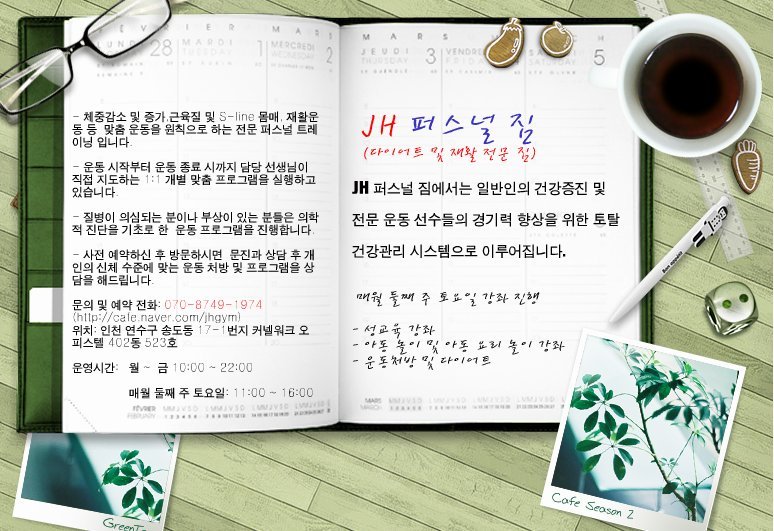 FÉVRIER MARS
LUNDI 28 MARDI 1 MERCREDI 2
TUESDAY WEDNESDAY
- 체중감소 및 증가,근육질 및 S-line 몸매, 재활운
동 등 맞춤 운동을 원칙으로 하는 전문 퍼스널 트레
이닝 입니다.
- 운동 시작부터 운동 종료 시까지 담당 선생님이
직접 지도하는 1:1 개별 맞춤 프로그램을 실행하고
있습니다.
- 질병이 의심되는 분이나 부상이 있는 분들은 의학
적 진단을 기초로 한 운동 프로그램을 진행합니다.
- 사전 예약하신 후 방문하시면 문진과 상담 후 개
인의 신체 수준에 맞는 운동 처방 및 프로그램을 상
담을 해드립니다.
문의 및 예약 전화: 070-8749-1974
(http://cafe.naver.com/jhgym)
위치: 인천 연수구 송도동 17-1번지 커넬워크 오
피스텔 402동 523호
운영시간: 월 ~ 금 10:00 ~ 22:00
매월 둘째 주 토요일: 11:00 ~ 16:00
FÉVRIER
FEBRUARY
MARS
JEUDI 3 VENDRE 5
THURSDAY FRIDAY
JH 퍼스널 짐
(다이어트 및 재활 전문 짐)
JH 퍼스널 짐에서는 일반인의 건강증진 및
전문 운동 선수들의 경기력 향상을 위한 토탈
건강관리 시스템으로 이루어집니다.
매월 둘째 주 토요일 강좌 진행
- 성교육 강좌
- 아동 놀이 및 아동 요리 놀이 강좌
- 운동처방 및 다이어트
MARS
MARCH
Cafe Season 2